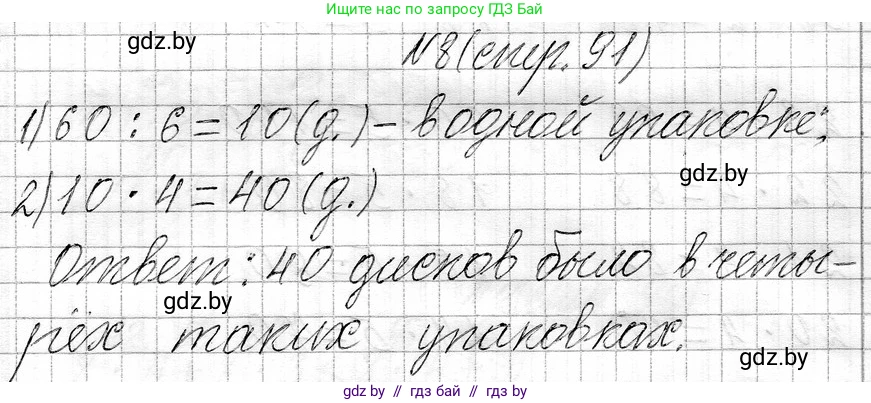 Ищите нас по запросу ГДЗ Бай
gdz.by
№8(стр. 91)
1) 60 : 6 = 10 (д.) - в одной упаковке;
gdz.by
2) 10 · 4 = 40 (д.)
Ответ: 40 дисков было в четы-
gdz.by
рёх таких упаковках.
gdz.by
gdz.by // гдз бай // гдз by